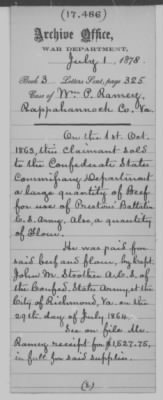 (17.486)
Archive Office,
WAR DEPARTMENT,
July 1 1878.
Book 3 Letters Sent, page 325
Case of Wm. P. Ramey,
Rappahannock Co. Va.
On the 1st. Oct.
1863, this claimant sold
to the Confederate States
Commissary Department
a large quantity of Beef
for use of Preston Battalion
C. S. Army. Also, a quantity
of Flour.
He was paid for
said beef and flour, by Capt.
John M. Strother A.C.S. of
the Confed. State Army, at the
City of Richmond, Va. on the
29th. day of July, 1864.
See on file Mr.
Ramey receipt for $1,527.75,
in full for said supplies.